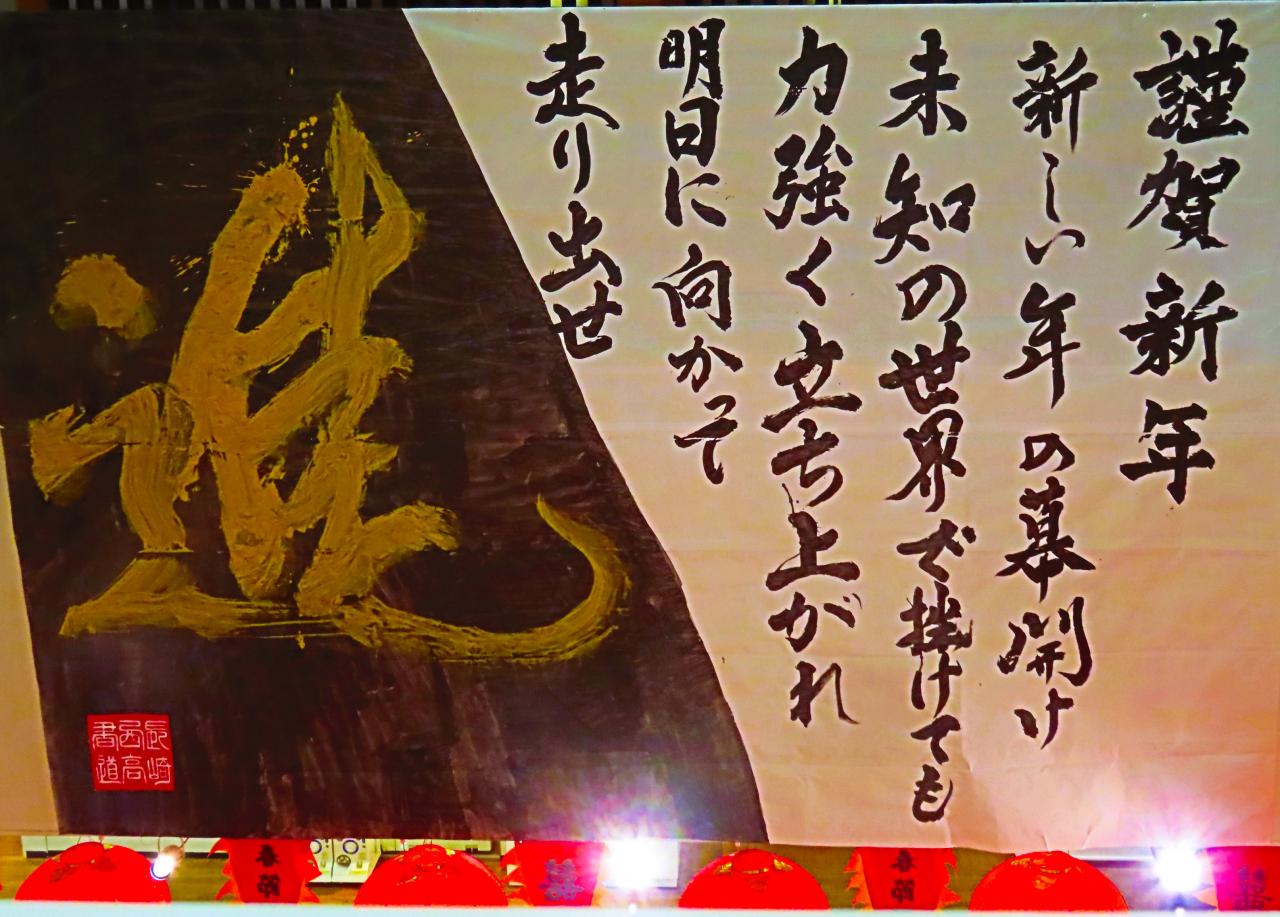 謹賀新年
新しい年の幕開け
未知の世界で挫けても
力強く立ち上がれ
明日に向かって
走り出せ
進
長崎
西高
書道
春節
囍
春節
囍